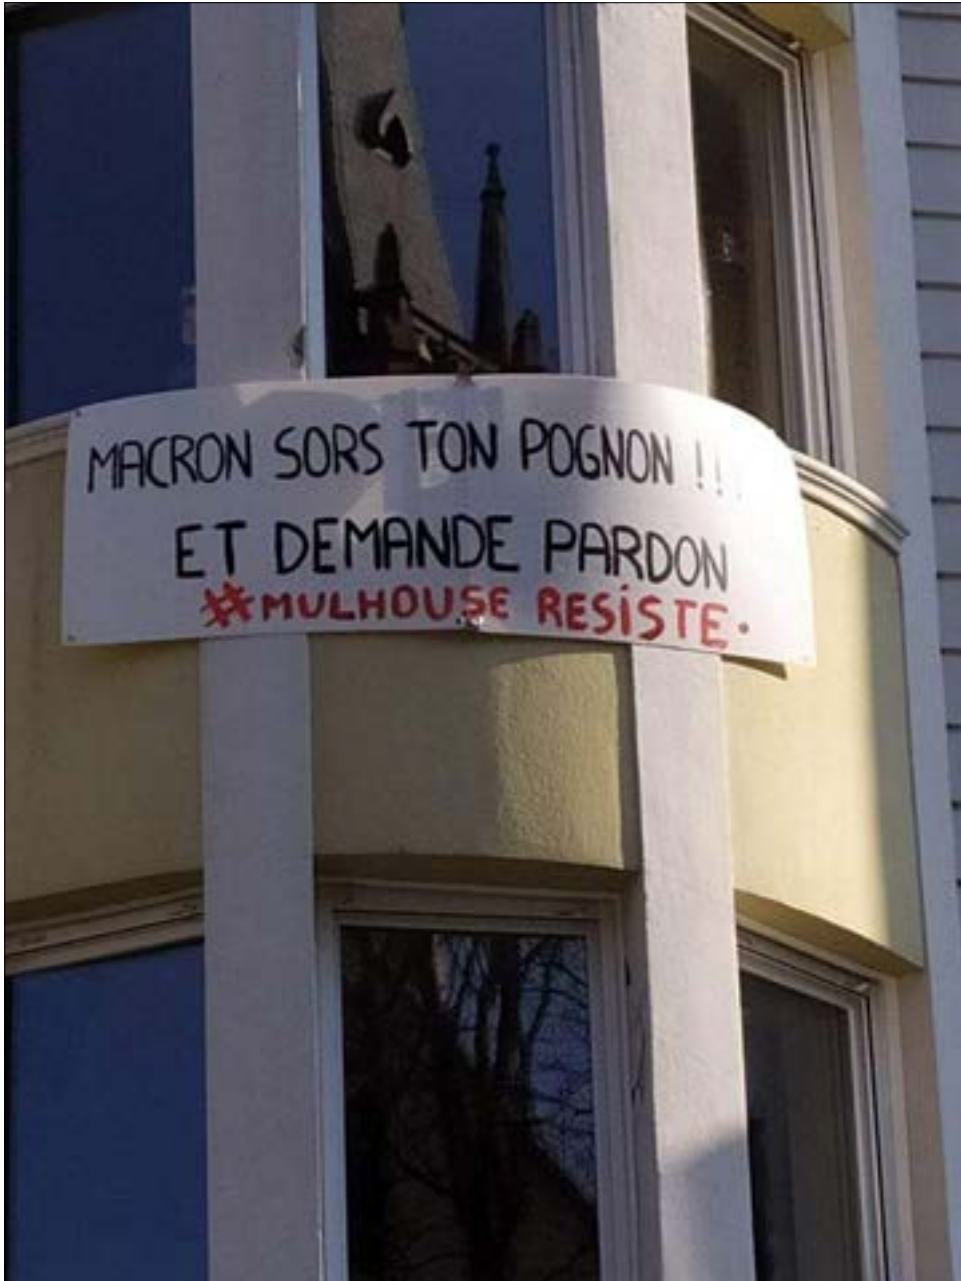 MACRON SORS TON POGNON !!!
ET DEMANDE PARDON
#MULHOUSE RESISTE.